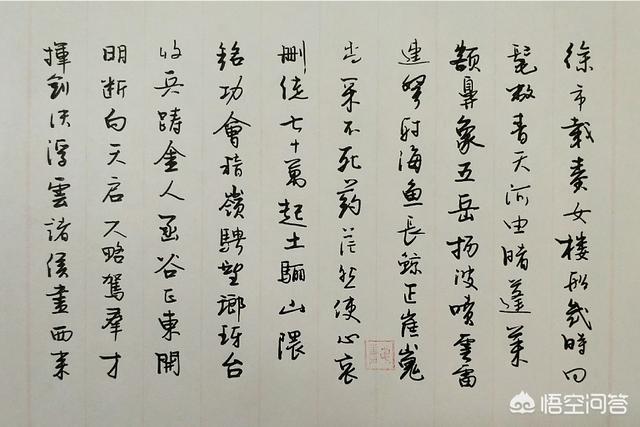 徐市載秦女樓船幾時回
鬐蔽青天何由睹蓬萊
額鼻象五岳揚波噴雲雷
連弩射海魚長鯨正崔嵬
尚采不死藥茫然使心哀
刑徒七十萬起土驪山隈
銘功會稽嶺騁望瑯琊台
收兵鑄金人函谷正東開
明断自天启大略駕群才
揮劍决浮雲諸侯盡西来
悟空问答